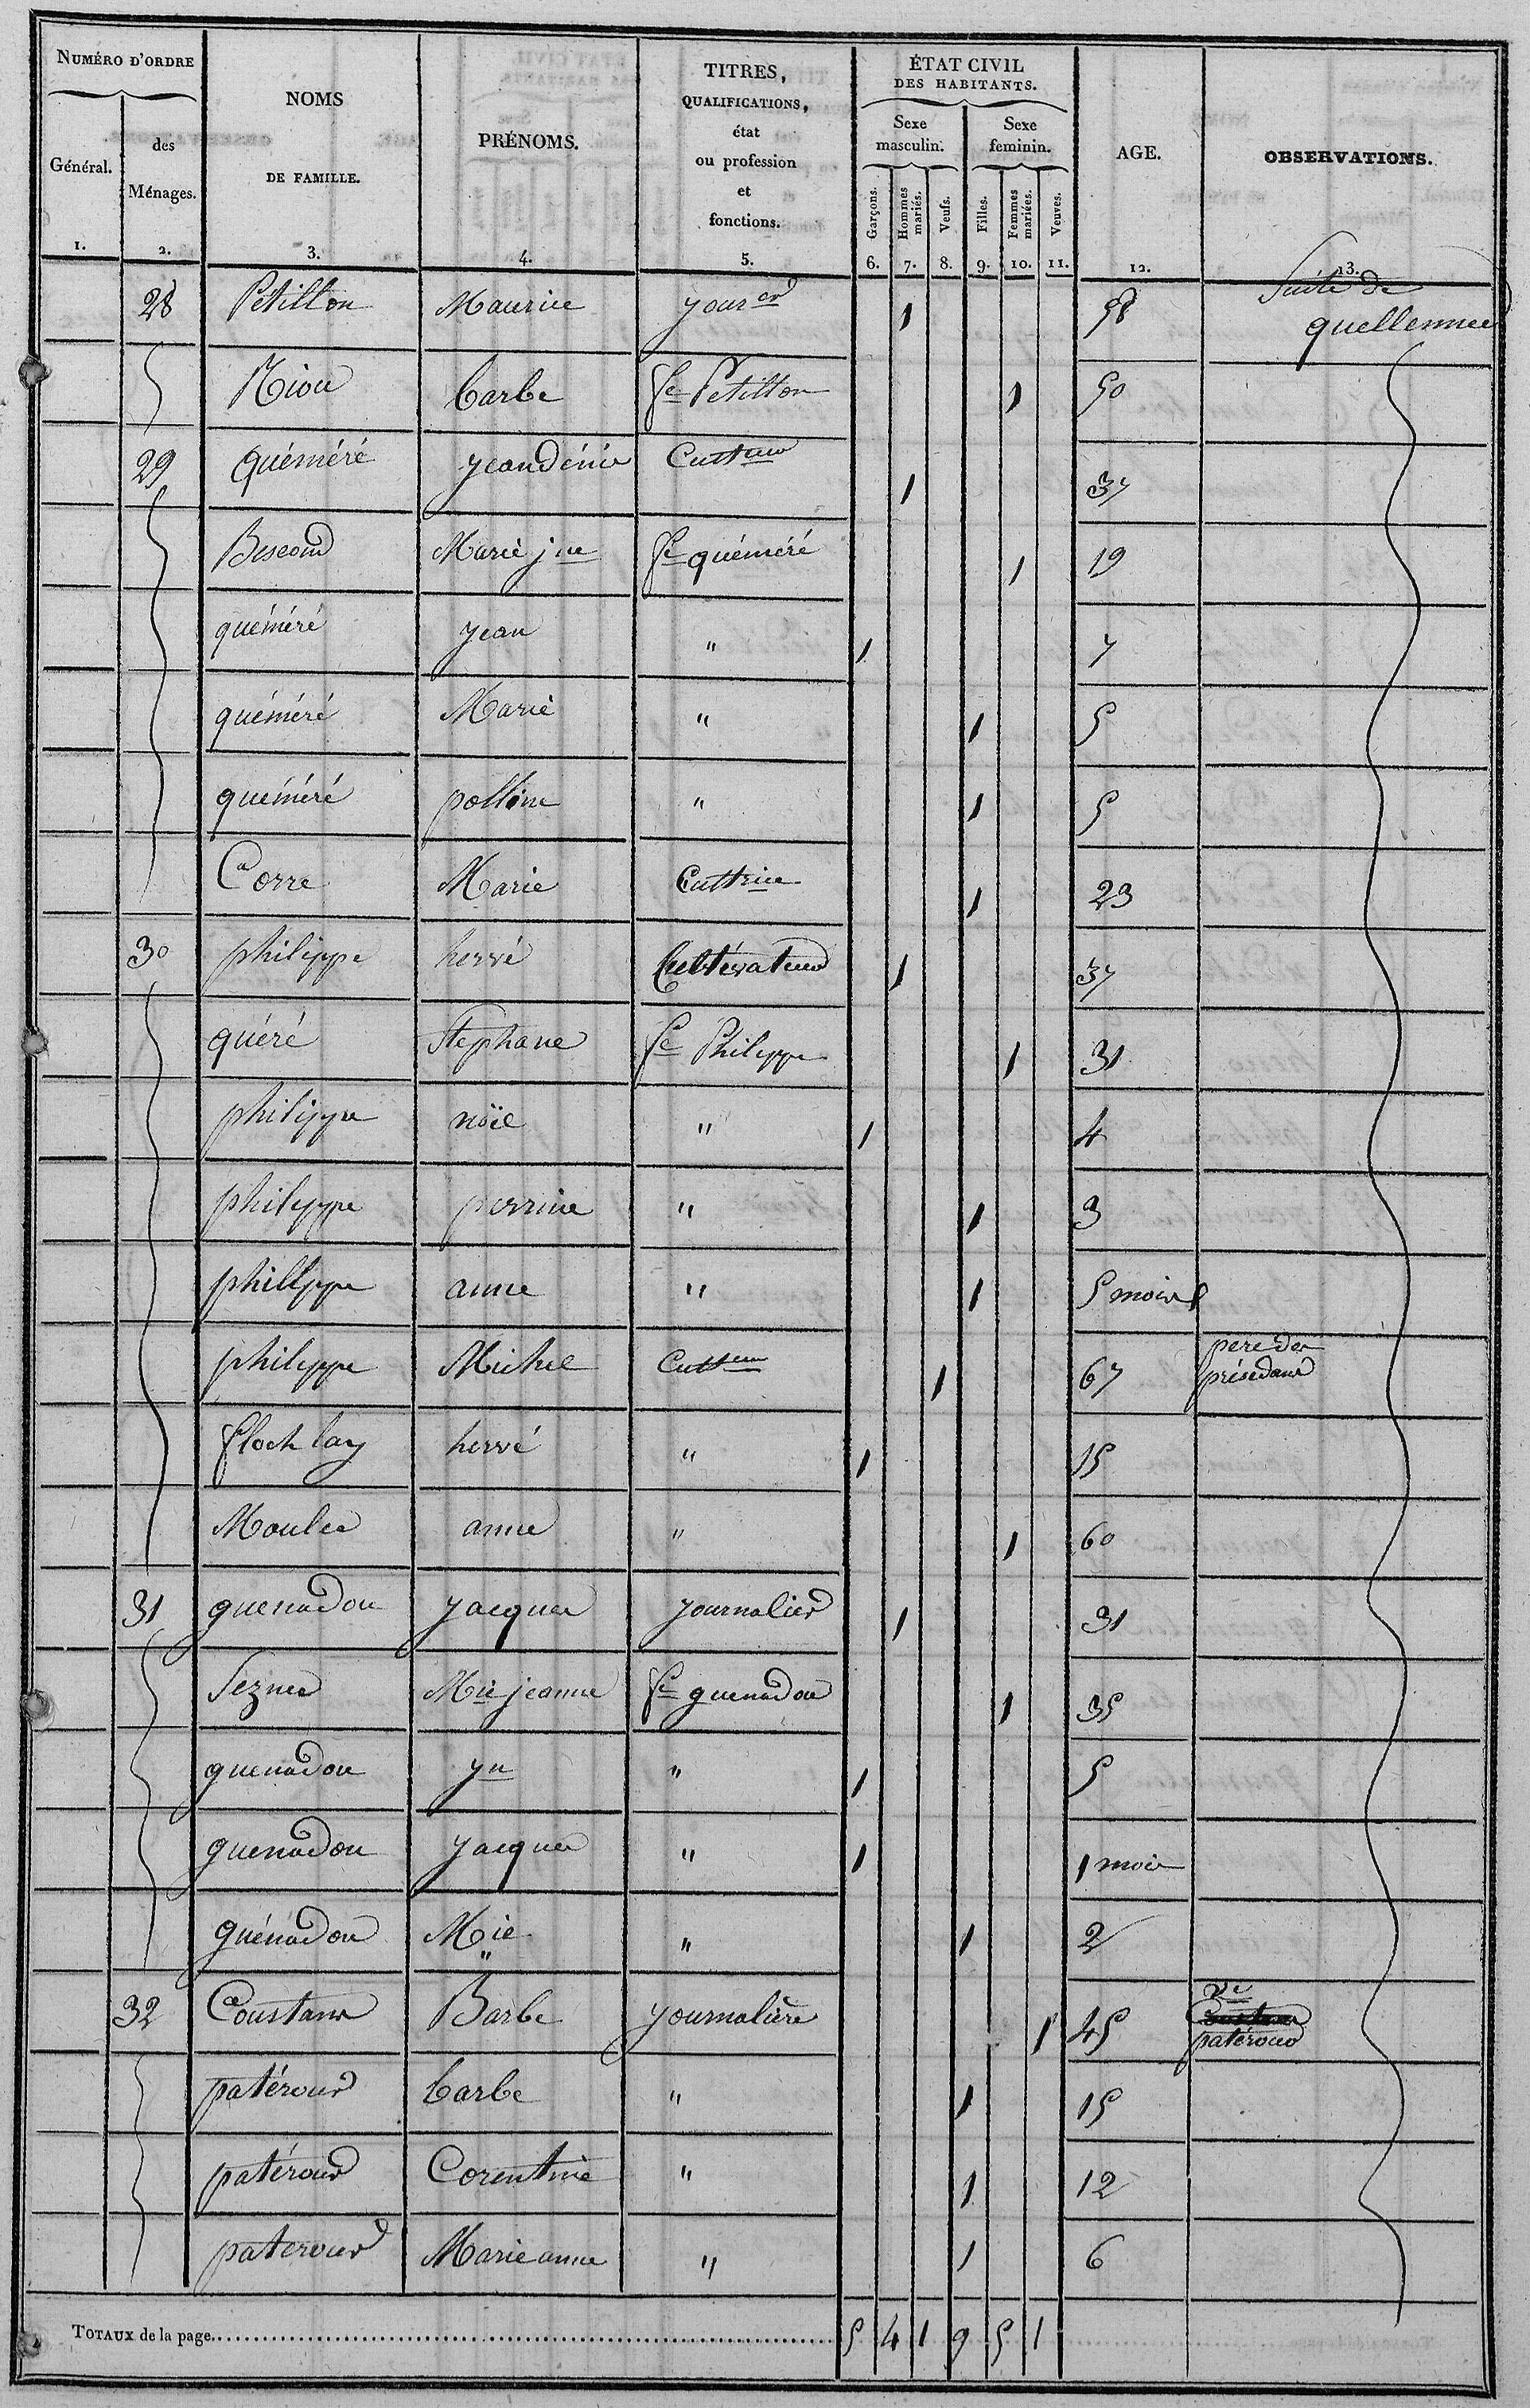 NUMÉRO D'ORDRE
Général.
des
Ménages.
NOMS
DE FAMILLE.
PRÉNOMS.
TITRES,
QUALIFICATIONS,
état
ou profession
et
fonctions.
ÉTAT CIVIL
DES HABITANTS.
Sexe
masculin.
Sexe
feminin.
Garçons.
Hommes
mariés.
Veufs.
Filles.
Femmes
mariées.
Veuves.
AGE.
OBSERVATIONS.
1. 2. 3. 4. 5. 6. 7. 8. 9. 10. 11. 12. 13.
28 Pétillon Maurice jourer 1 58 Suite de
quellennec
Riou barbe fe Petillon 1 50
29 quéméré jean dénis Culteur 1 37
Bescond Marie jne fe quéméré 1 19
quéméré jean " 1 7
quéméré Marie " 1 5
quéméré polline " 1 5
Corre Marie Cultrice 1 23
30 philippe hervé Cultivateur 1 37
quéré Stéphane fe Philippe 1 31
philippe noël " 1 4
philippe perrine " 1 3
philippe anne " 1 5 mois
philippe Michel Culteur 1 67 pere des
présedans
floch lay hervé " 1 15
Moulec anne " 1 60
31 guenadou jacques journalier 1 31
Seznec Mie jeanne fe guenadou 1 35
guenadou jn " 1 5
guenadou jacques " 1 1 mois
guénadou Mie " 1 2
32 Coustans Barbe journalière 1 45 Ve
patérour
patérour barbe " 1 15
patérour Corentine " 1 12
paterour Marie anne " 1 6
TOTAUX de la page 5 4 1 9 5 1